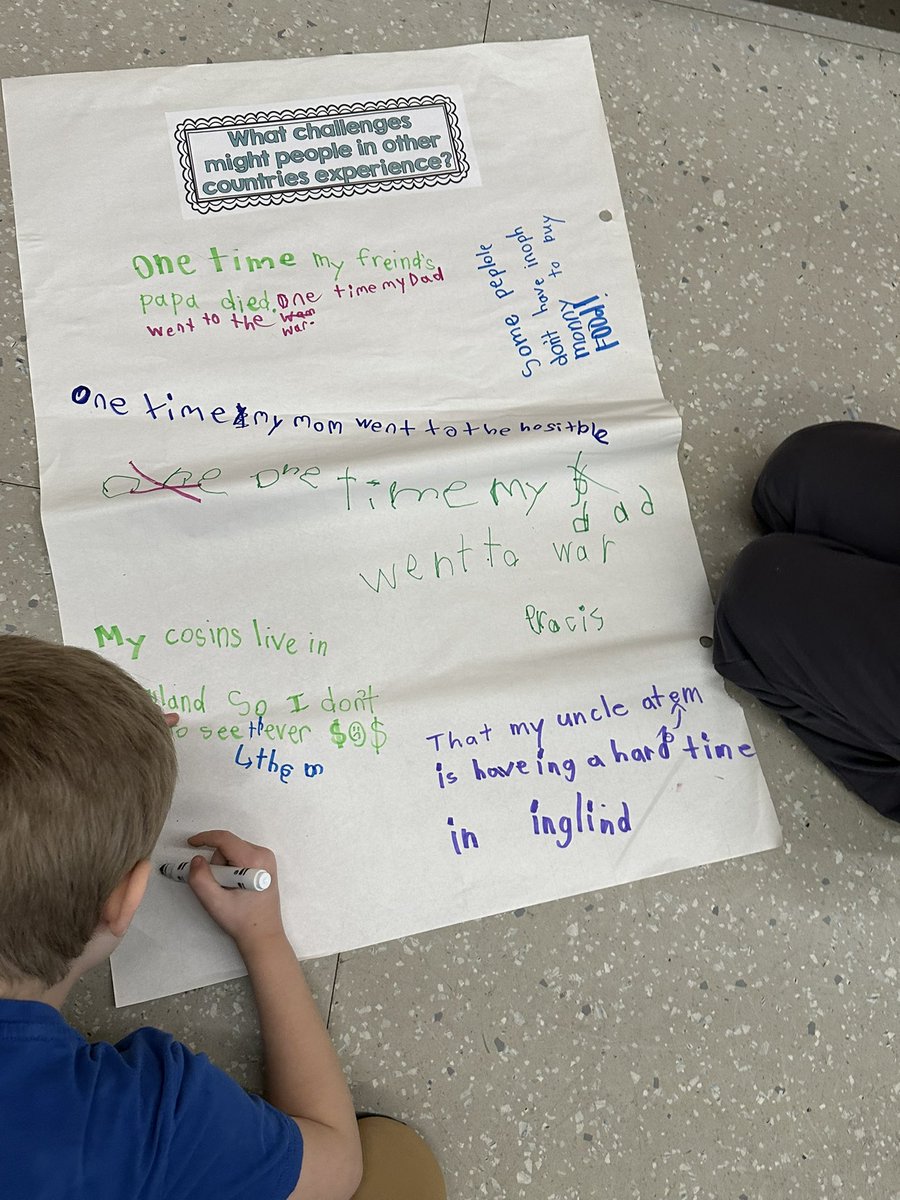 What challenges
might people in other
countries experience?
One time my freind's
papa died. One time my Dad
went to the
war.
Some peplole
dont have inoph
monny to buy
Food!
One time my mom went to the hositple
one time my
dad
went to war
My cosins live in
land So I don't
see ever $☹$
↳them
That my uncle atem
is haveing a hard time
in inglind